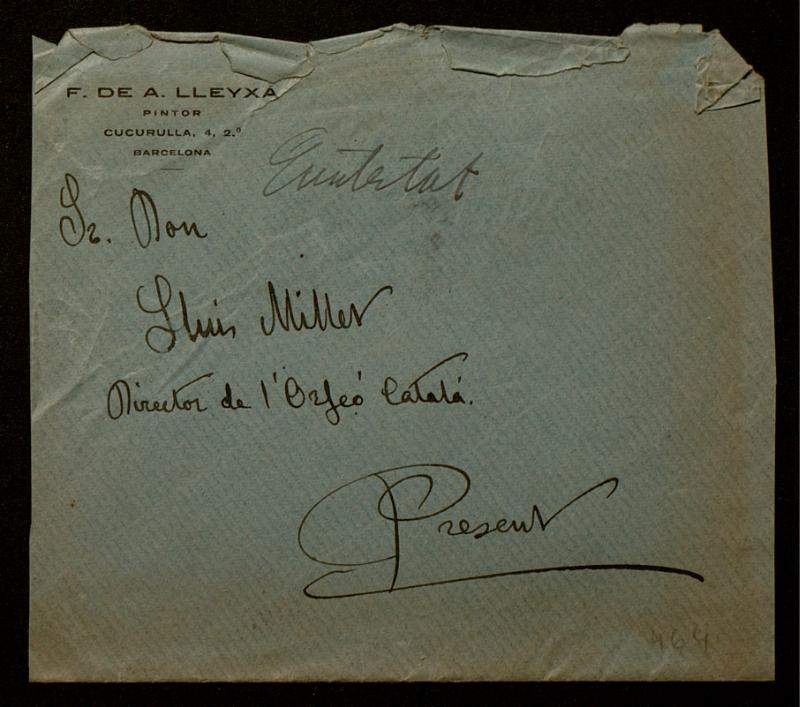 F. DE A. LLEYXA
PINTOR
CUCURULLA, 4, 2.º
BARCELONA
Contestat
Sr. Don
Lluis Millet
Director de l'Orfeó Catalá.
Present
464